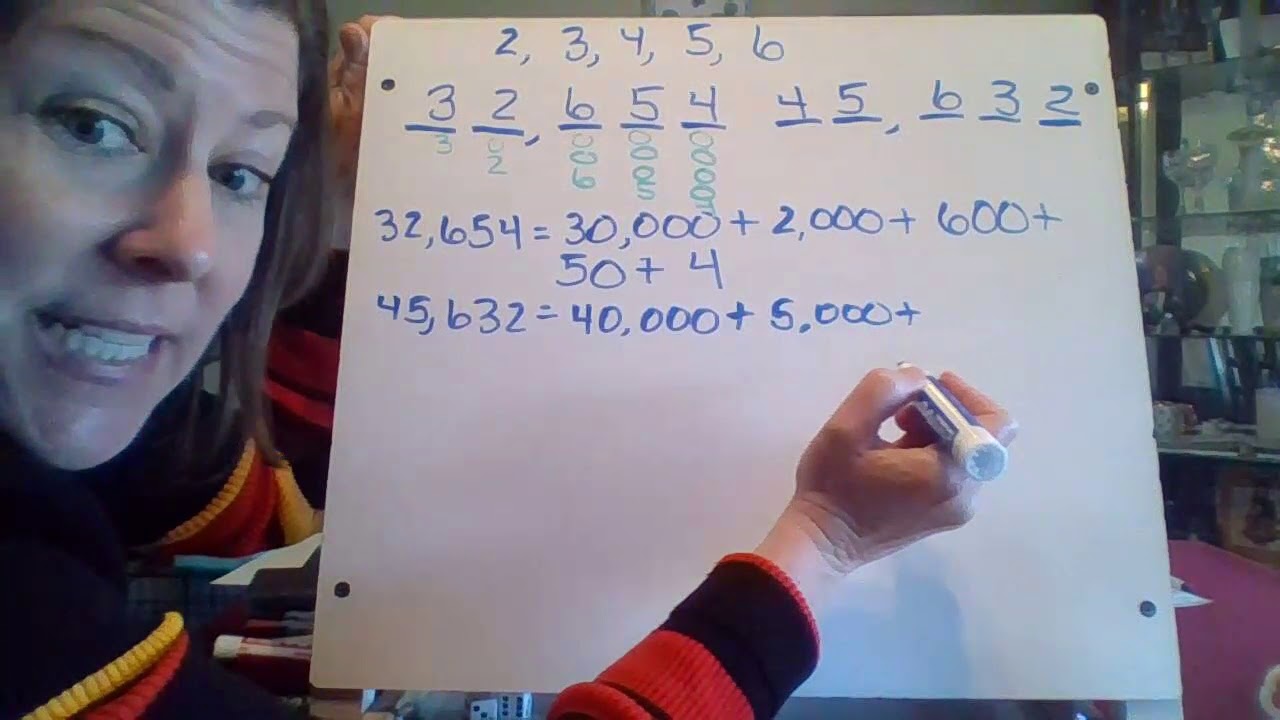 2, 3, 4, 5, 6
3 2, 6 5 4 4 5, 6 3 2
3 0 0 0 0
2 0 0 0
6 0 0
5 0
32,654 = 30,000 + 2,000 + 600 +
50 + 4
45,632 = 40,000 + 5,000 +